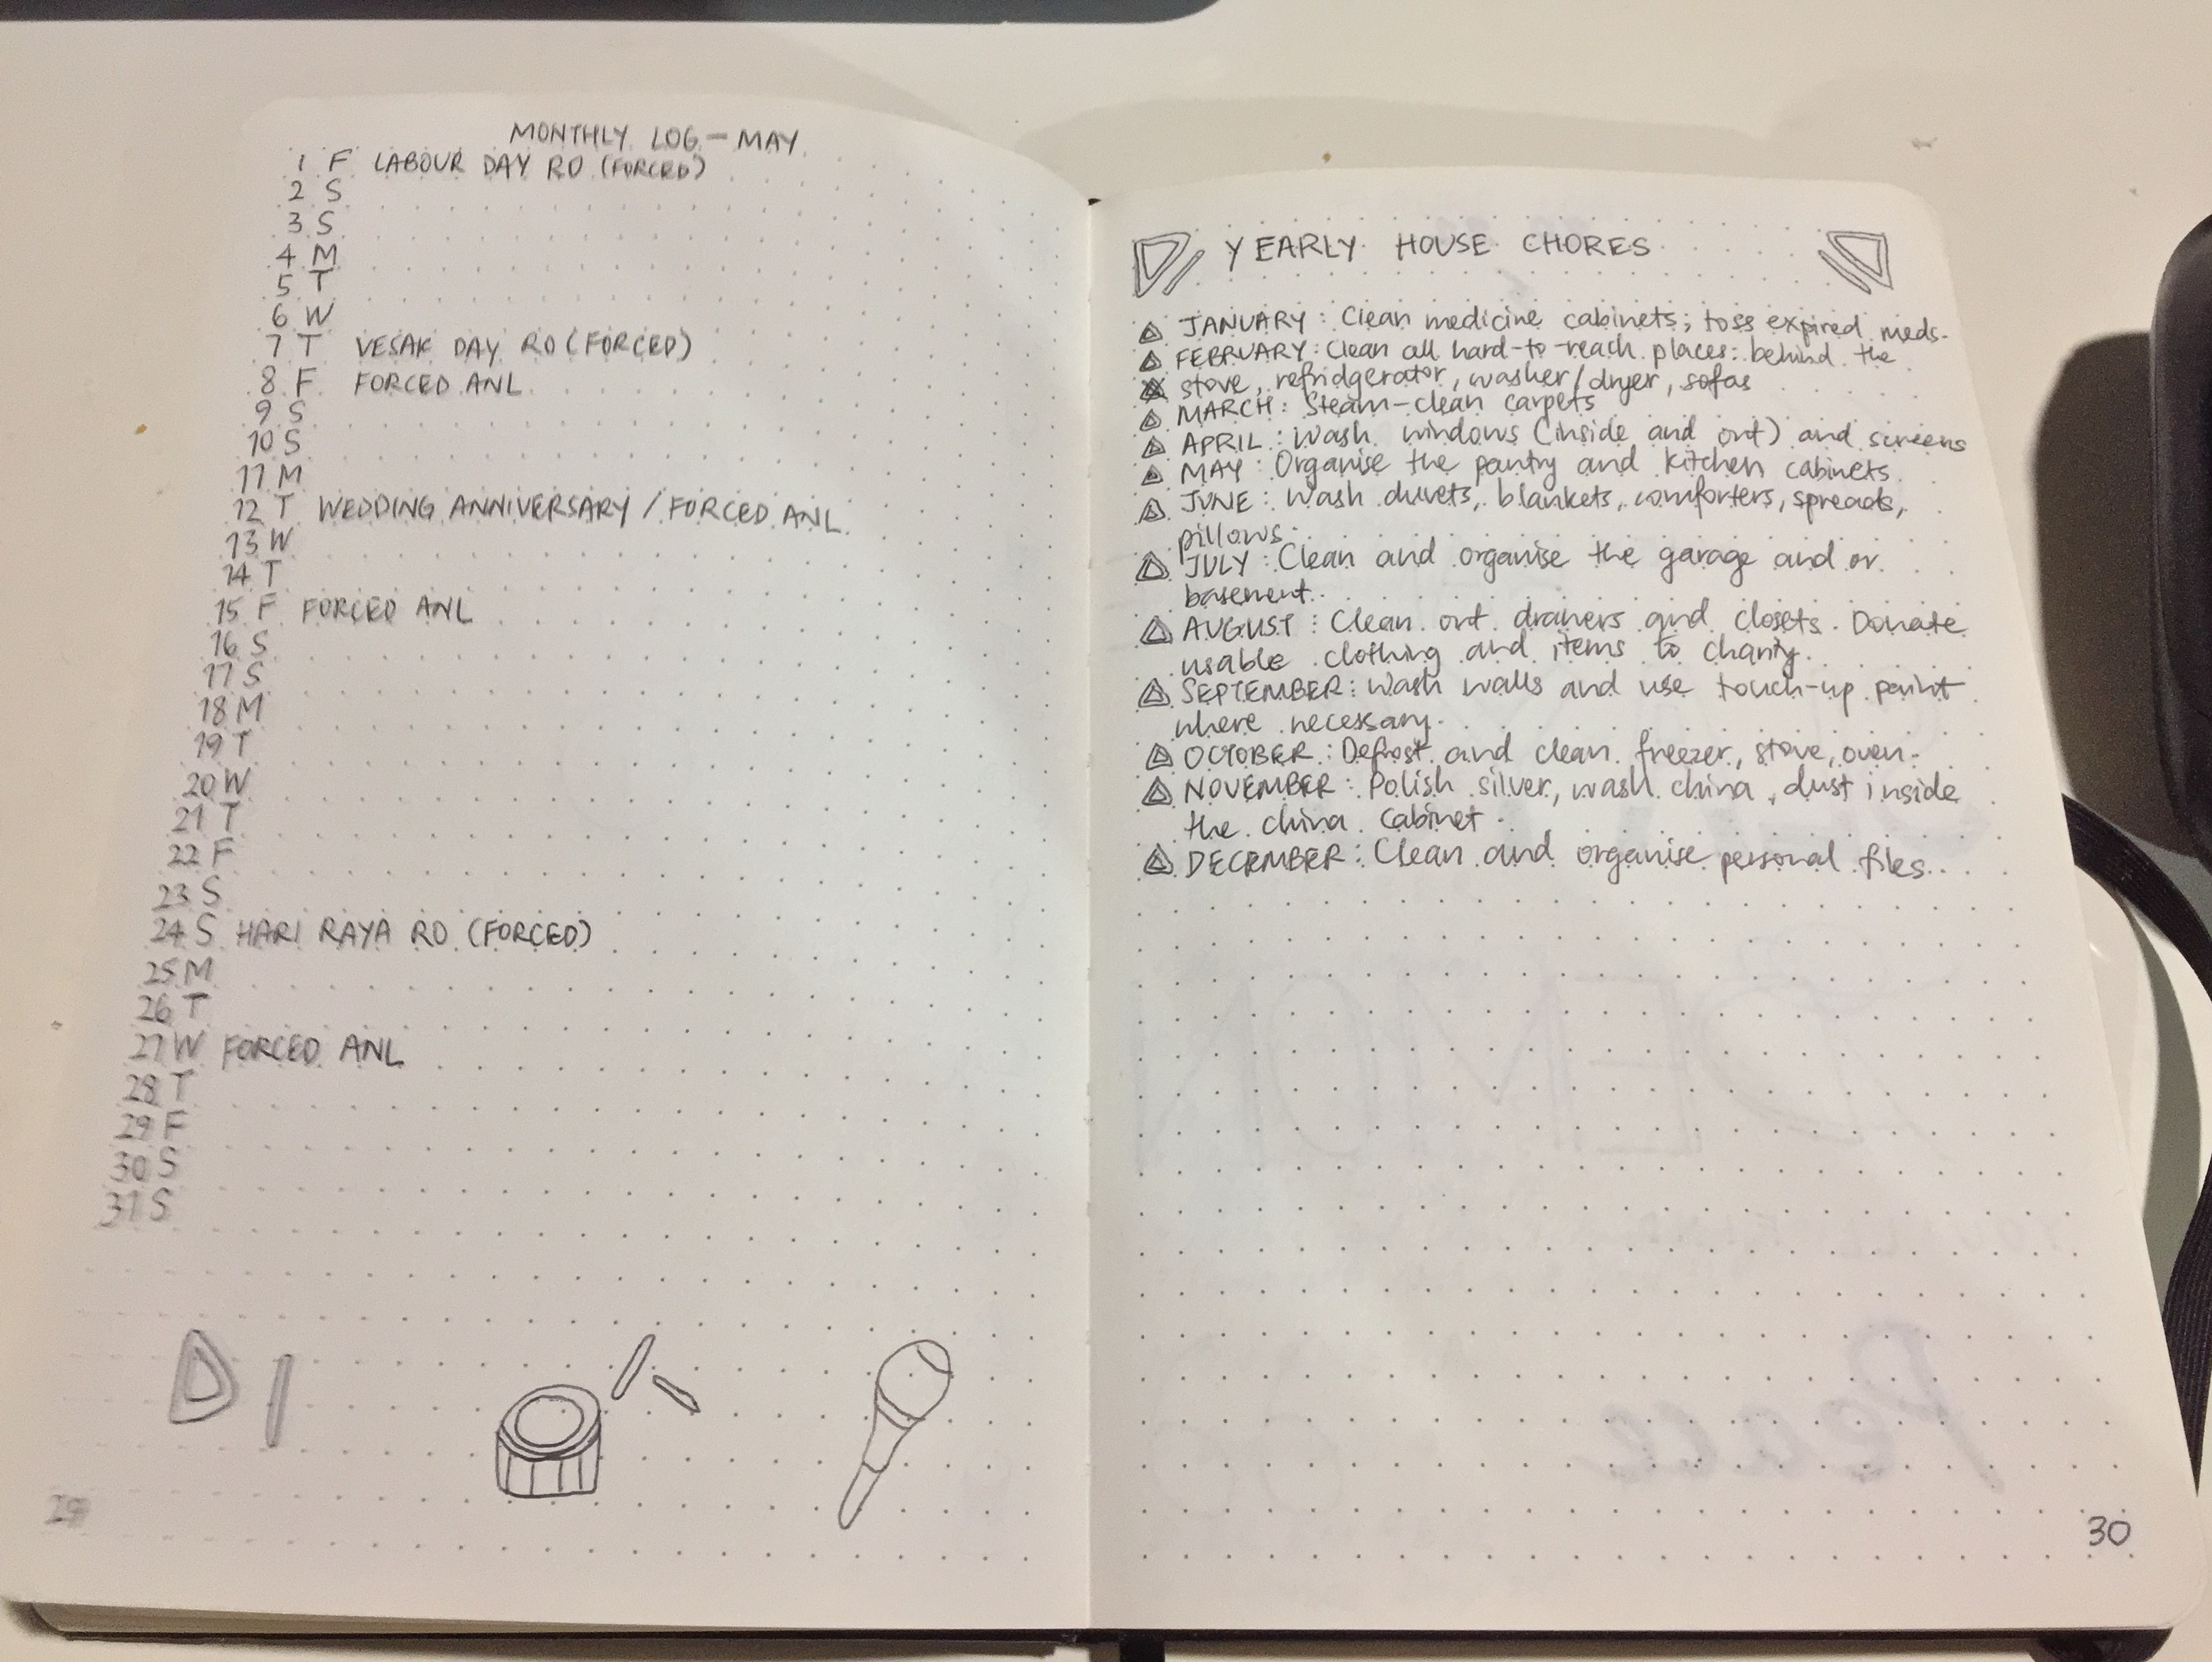 MONTHLY LOG - MAY
1 F LABOUR DAY RO (FORCED)
2 S
3 S
4 M
5 T
6 W
7 T VESAK DAY RO (FORCED)
8 F FORCED ANL
9 S
10 S
11 M
12 T WEDDING ANNIVERSARY / FORCED ANL
13 W
14 T
15 F FORCED ANL
16 S
17 S
18 M
19 T
20 W
21 T
22 F
23 S
24 S HARI RAYA RO (FORCED)
25 M
26 T
27 W FORCED ANL
28 T
29 F
30 S
31 S
29
YEARLY HOUSE CHORES
JANUARY : Clean medicine cabinets; toss expired meds.
FEBRUARY : Clean all hard-to-reach places: behind the
stove, refridgerator, washer/dryer, sofas
MARCH : Steam-clean carpets
APRIL : Wash windows (inside and out) and screens
MAY : Organise the pantry and kitchen cabinets
JUNE : Wash duvets, blankets, comforters, spreads,
pillows.
JULY : Clean and organise the garage and or
basement.
AUGUST : Clean out drawers and closets. Donate
usable clothing and items to charity.
SEPTEMBER : Wash walls and use touch-up paint
where necessary.
OCTOBER : Defrost and clean freezer, stove, oven.
NOVEMBER : Polish silver, wash china, dust inside
the china cabinet.
DECEMBER : Clean and organise personal files.
30